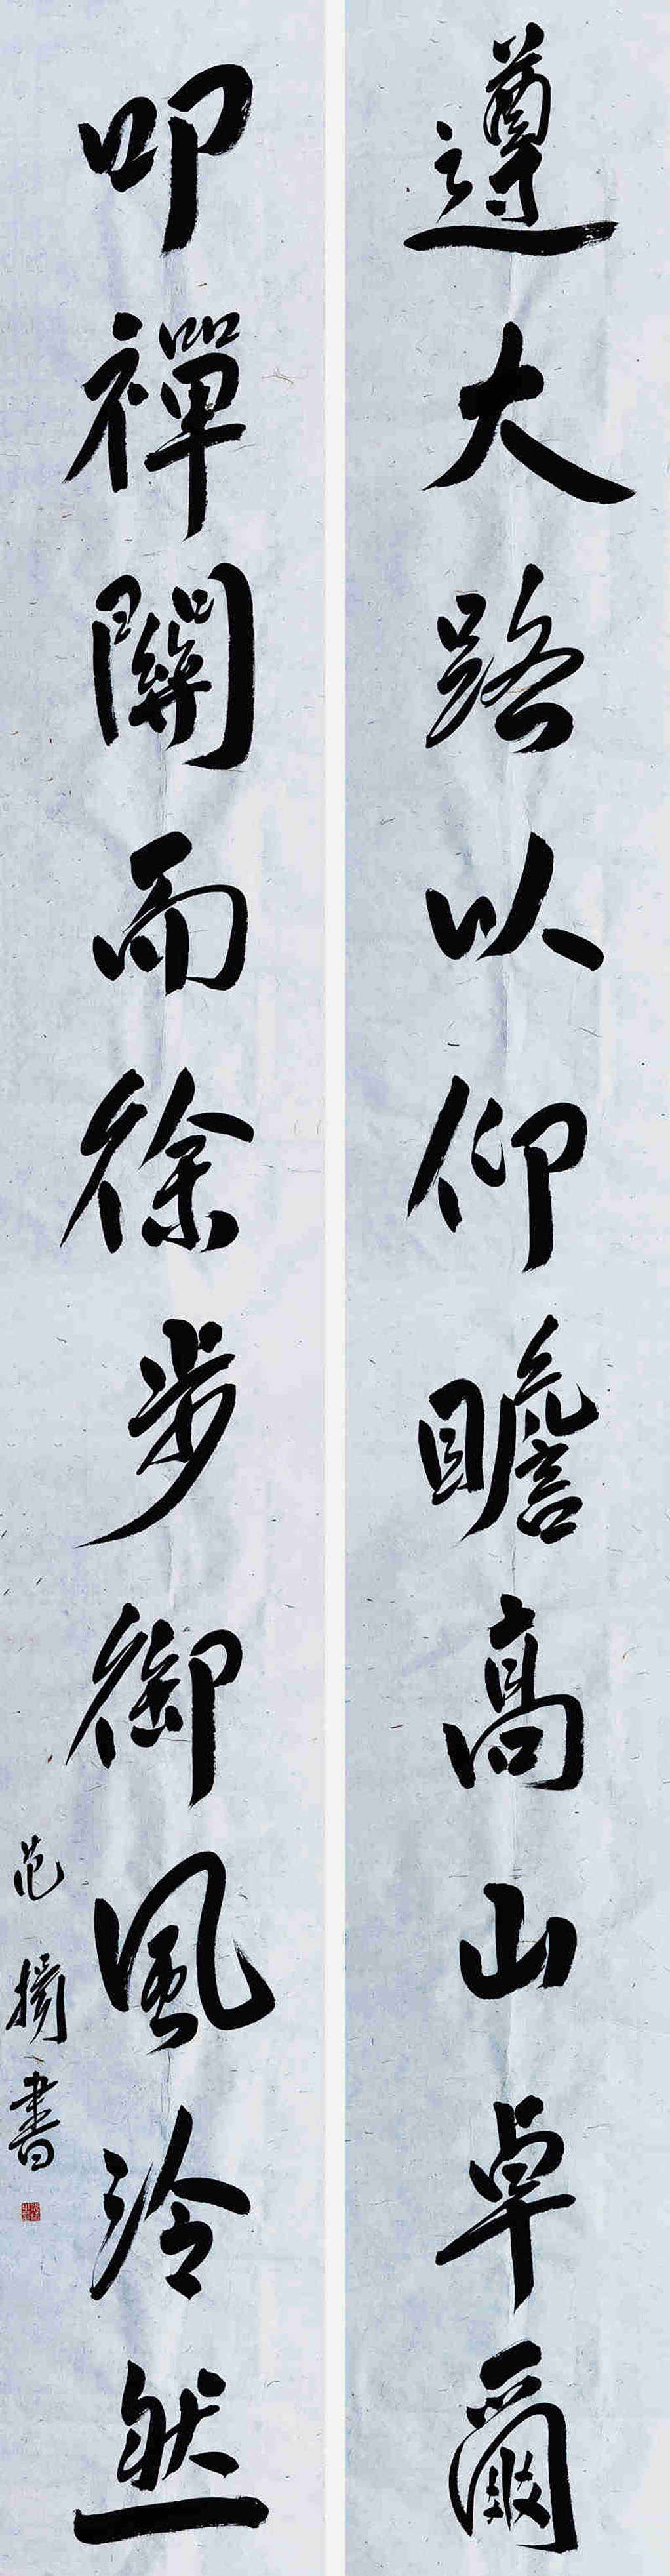 遵大路以仰瞻高山卓爾
叩禪關而徐步御風泠然
范揚書